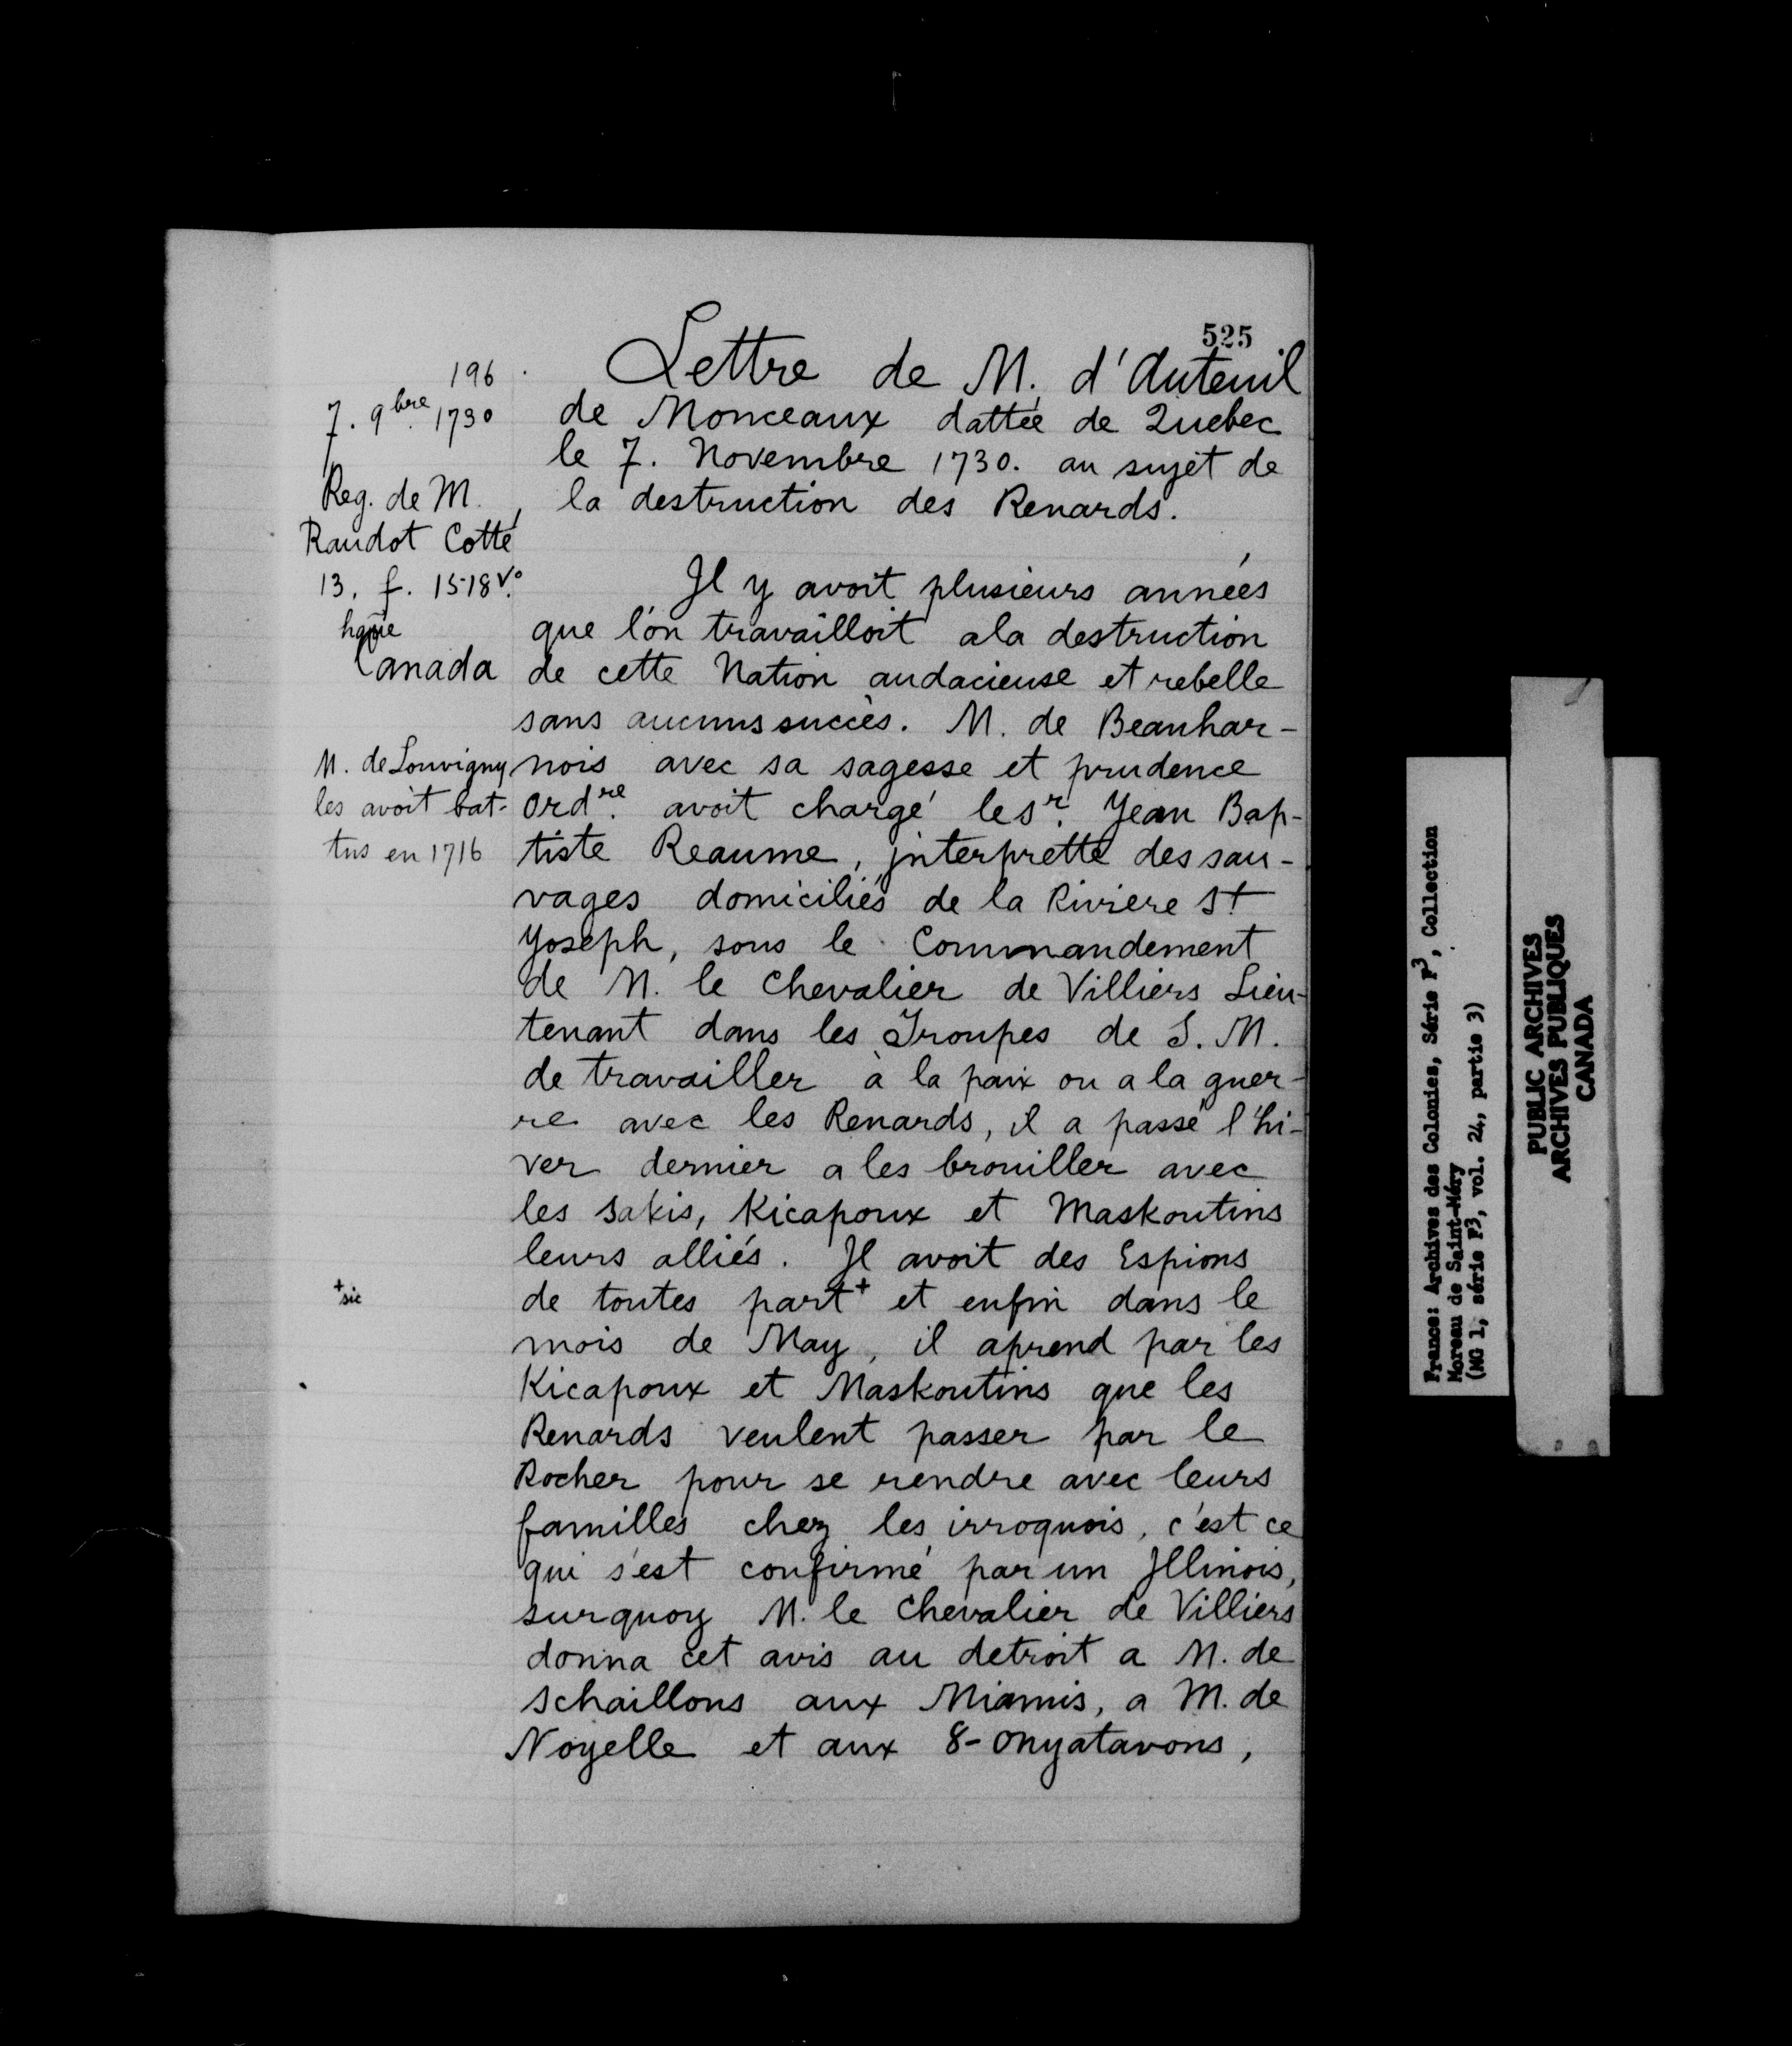 525
196
7. 9bre 1730
Reg. de M.
Raudot Cotté
13. f. 15-18 vº.
Canada
M. de Louvigny
les avoit bat-
tus en 1716
+ sic
Lettre de M. d'Auteuil
de Monceaux dattée de Quebec
le 7. Novembre 1730. au sujet de
la destruction des Renards.
Il y avoit plusieurs années
que l'on travailloit a la destruction
de cette Nation audacieuse et rebelle
sans aucuns succès. M. de Beauhar-
nois avec sa sagesse et prudence
ordre. avoit chargé le sr. Jean Bap-
tiste Reaume, interprette des sau-
vages domiciliés de la Riviere St
Joseph, sous le Commandement
de M. le Chevalier de Villiers Lieu-
tenant dans les Troupes de S. M.
de travailler à la paix ou a la guer-
re avec les Renards, il a passé l'hi-
ver dernier a les brouiller avec
les sakis, Kicapoux et Maskoutins
leurs alliés. Il avoit des Espions
de toutes part+ et enfin dans le
mois de May, il aprend par les
Kicapoux et Maskoutins que les
Renards veulent passer par le
Rocher pour se rendre avec leurs
familles chez les irroquois, c'est ce
qui s'est confirmé par un Illinois,
surquoy M. le Chevalier de Villiers
donna cet avis au detroit a M. de
schaillons aux Miamis, a M. de
Noyelle et aux 8-onyatavons,
France: Archives des Colonies, Série F3, Collection
Moreau de Saint-Méry
(MG 1, série F3, vol. 24, partie 3)
PUBLIC ARCHIVES
ARCHIVES PUBLIQUES
CANADA